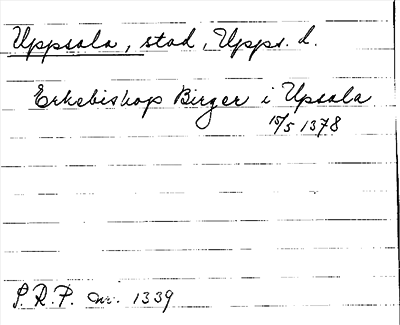 Uppsala, stad, Upps. d.
Erkebiskop Birger i Upsala
15/5 1378
S. R. P. nr. 1339